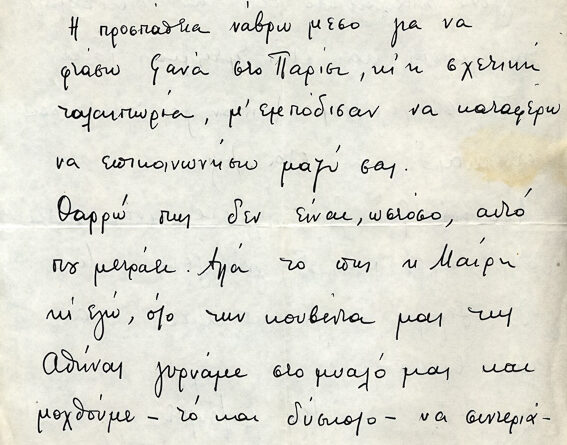 Η προσπάθεια νάβρω μέσο για να
φτάσω ξανά στο Παρίσι, κι η σχετική
ταλαιπωρία, μ' εμπόδισαν να καταφέρω
να επικοινωνήσω μαζύ σας.
Θαρρώ πως δεν είναι, ωστόσο, αυτό
που μετράει. Αλλά το πως η Μαίρη
κι εγώ, όλο την κουβέντα μας της
Αθήνας γυρνάμε στο μυαλό μας και
μοχθούμε – τό και δύσκολο – να συντεριά-